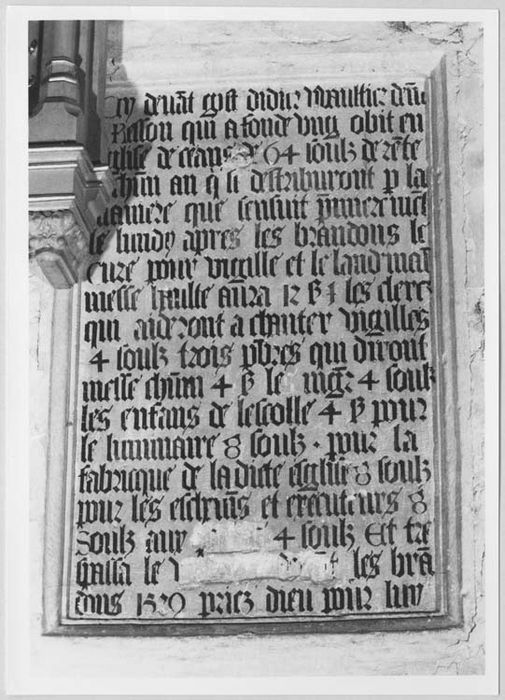 Cy devāt gist didier Vvaultier demͫ
Reson qui a fonde vng obit en
eglise de ceans de 64 soulz de rēte
chūn an q̄ se destribueront p la
maniere que sensuit p̄mierem̄et
le lundy apres les brandons le
cure pour vigille et le land mai
messe haulte aura 12 β les clerc
qui aideront a chanter vigilles
4 soulz trois pb̄res qui diront
messe chūm 4 β le mgr̄ 4 soulz
les enfans de lescolle 4 β pour
le luminaire 8 soulz . pour la
fabricque de la dicte esglise 8 soulz
pour les eschevīs et executeurs 8
Soulz aux 4 soulz Et tre
spassa le les brā
dons 1539 priez dieu pour luy